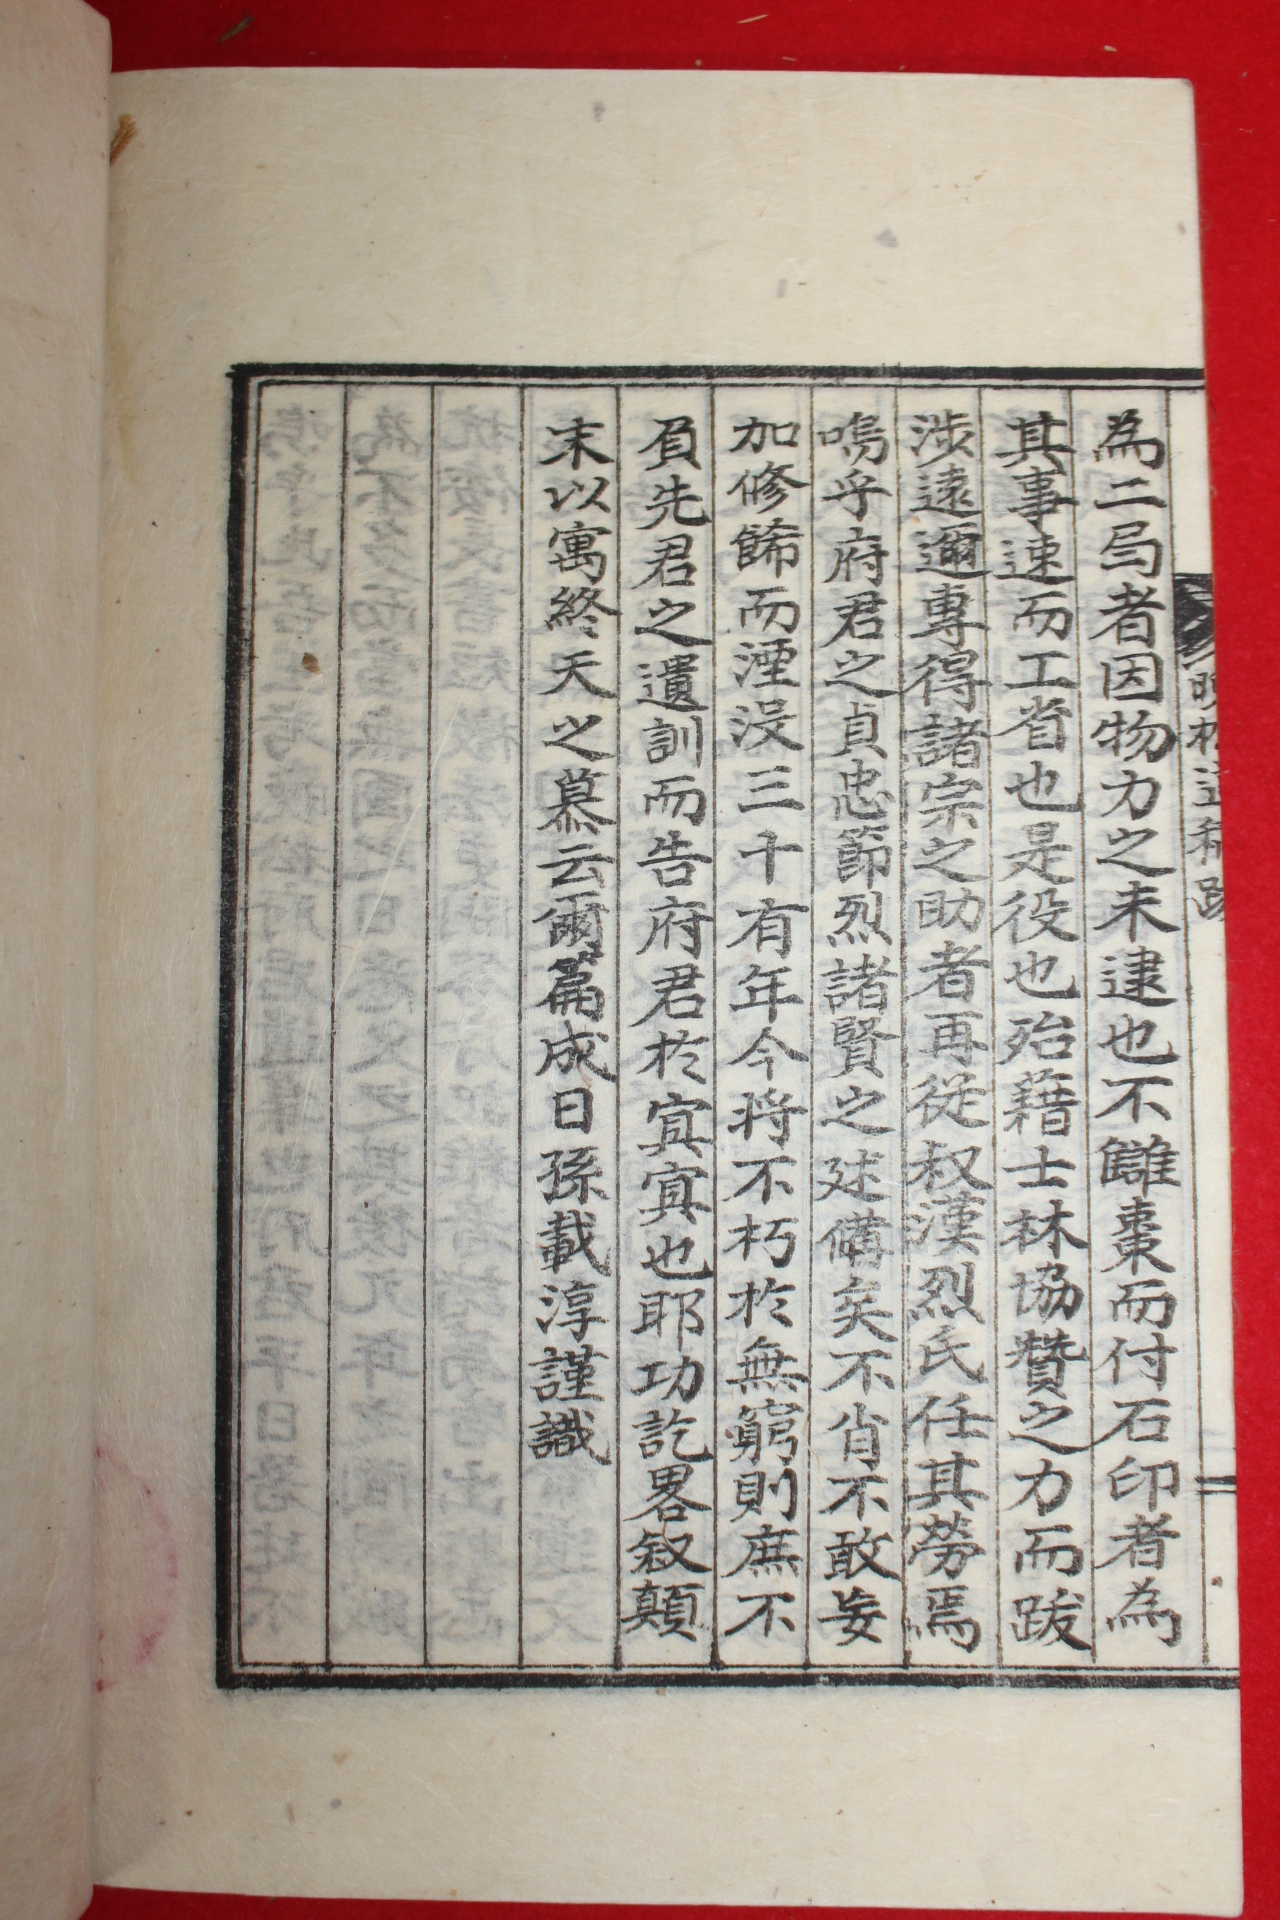 為二局者因物力之未逮也不讎棗而付石印者為
其事速而工省也是役也殆藉士林協贊之力而跋
涉遠邇專得諸宗之助者再從叔漢烈氏任其勞焉
嗚乎府君之貞忠節烈諸賢之述備矣不肖不敢妄
加修餙而湮没三十有年今将不朽於無窮則庶不
負先君之遺訓而告府君於寘寘也耶功訖畧叙顛
末以寓終天之慕云爾篇成日孫載淳謹識